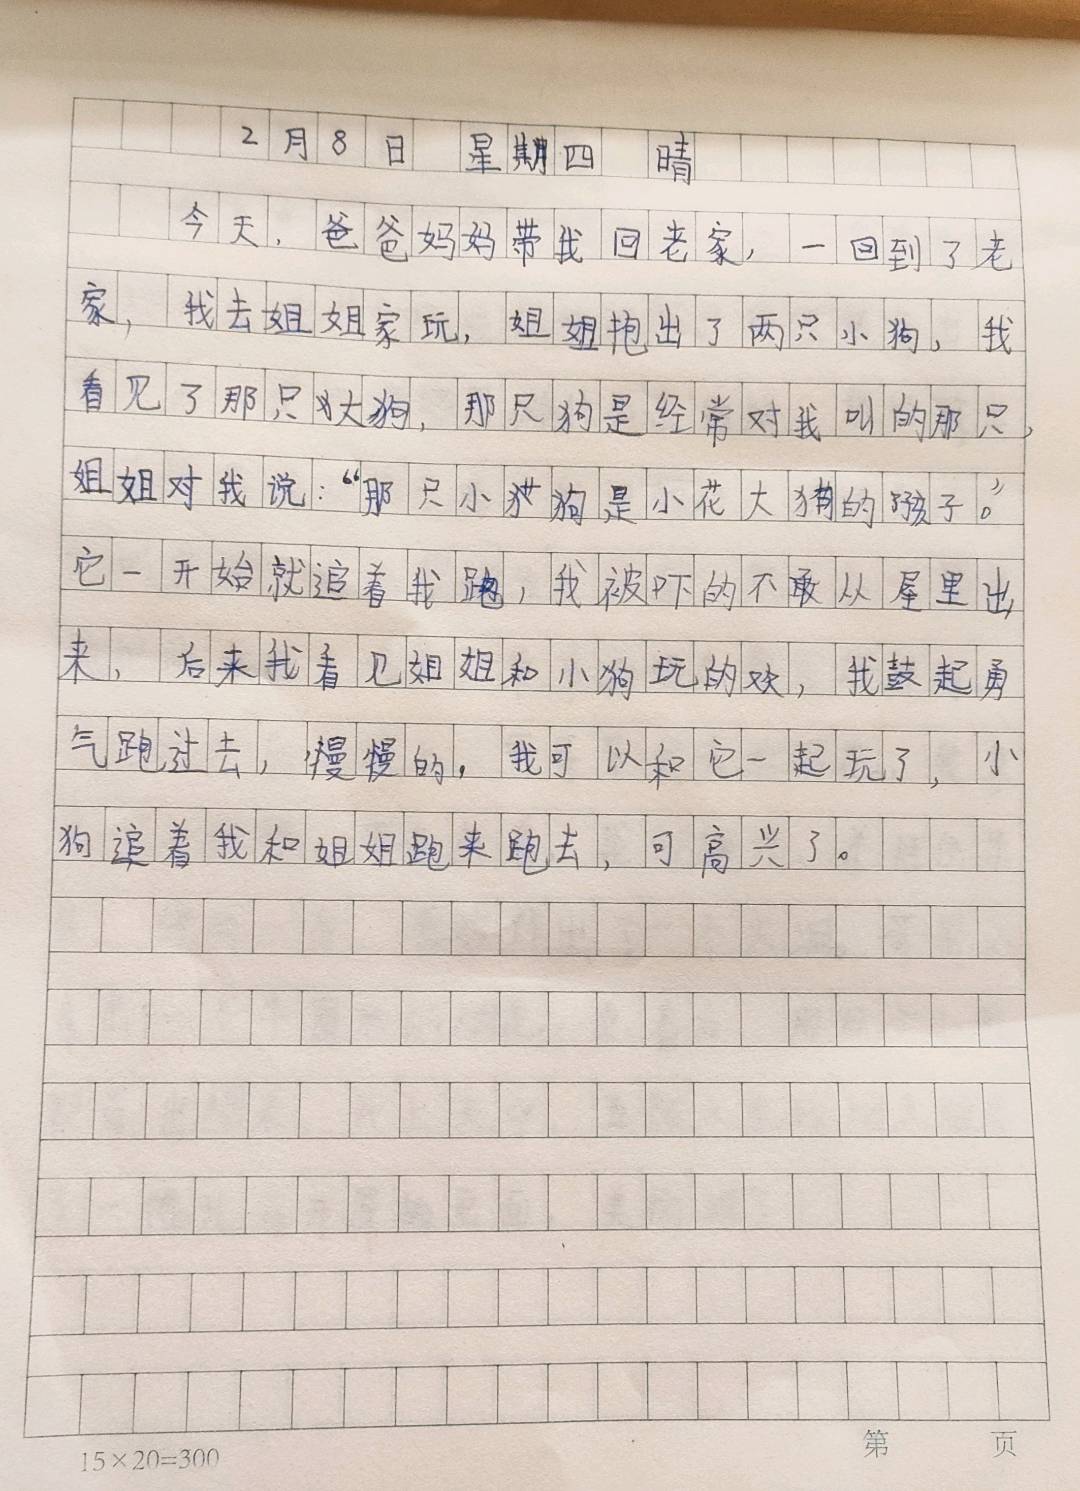 2月8日 星期四 晴
今天，爸爸妈妈带我回老家，一回到了老
家，我去姐姐家玩，姐姐抱出了两只小狗，我
看见了那只大狗，那只狗是经常对我叫的那只，
姐姐对我说：“那只小狗是小花大的孩子。”
它一开始就追着我跑，我被吓的不敢从屋里出
来，后来我看见姐姐和小狗玩的欢，我鼓起勇
气跑过去，慢慢的，我可以和它一起玩了，小
狗追着我和姐姐跑来跑去，可高兴了。
15×20=300
第 页